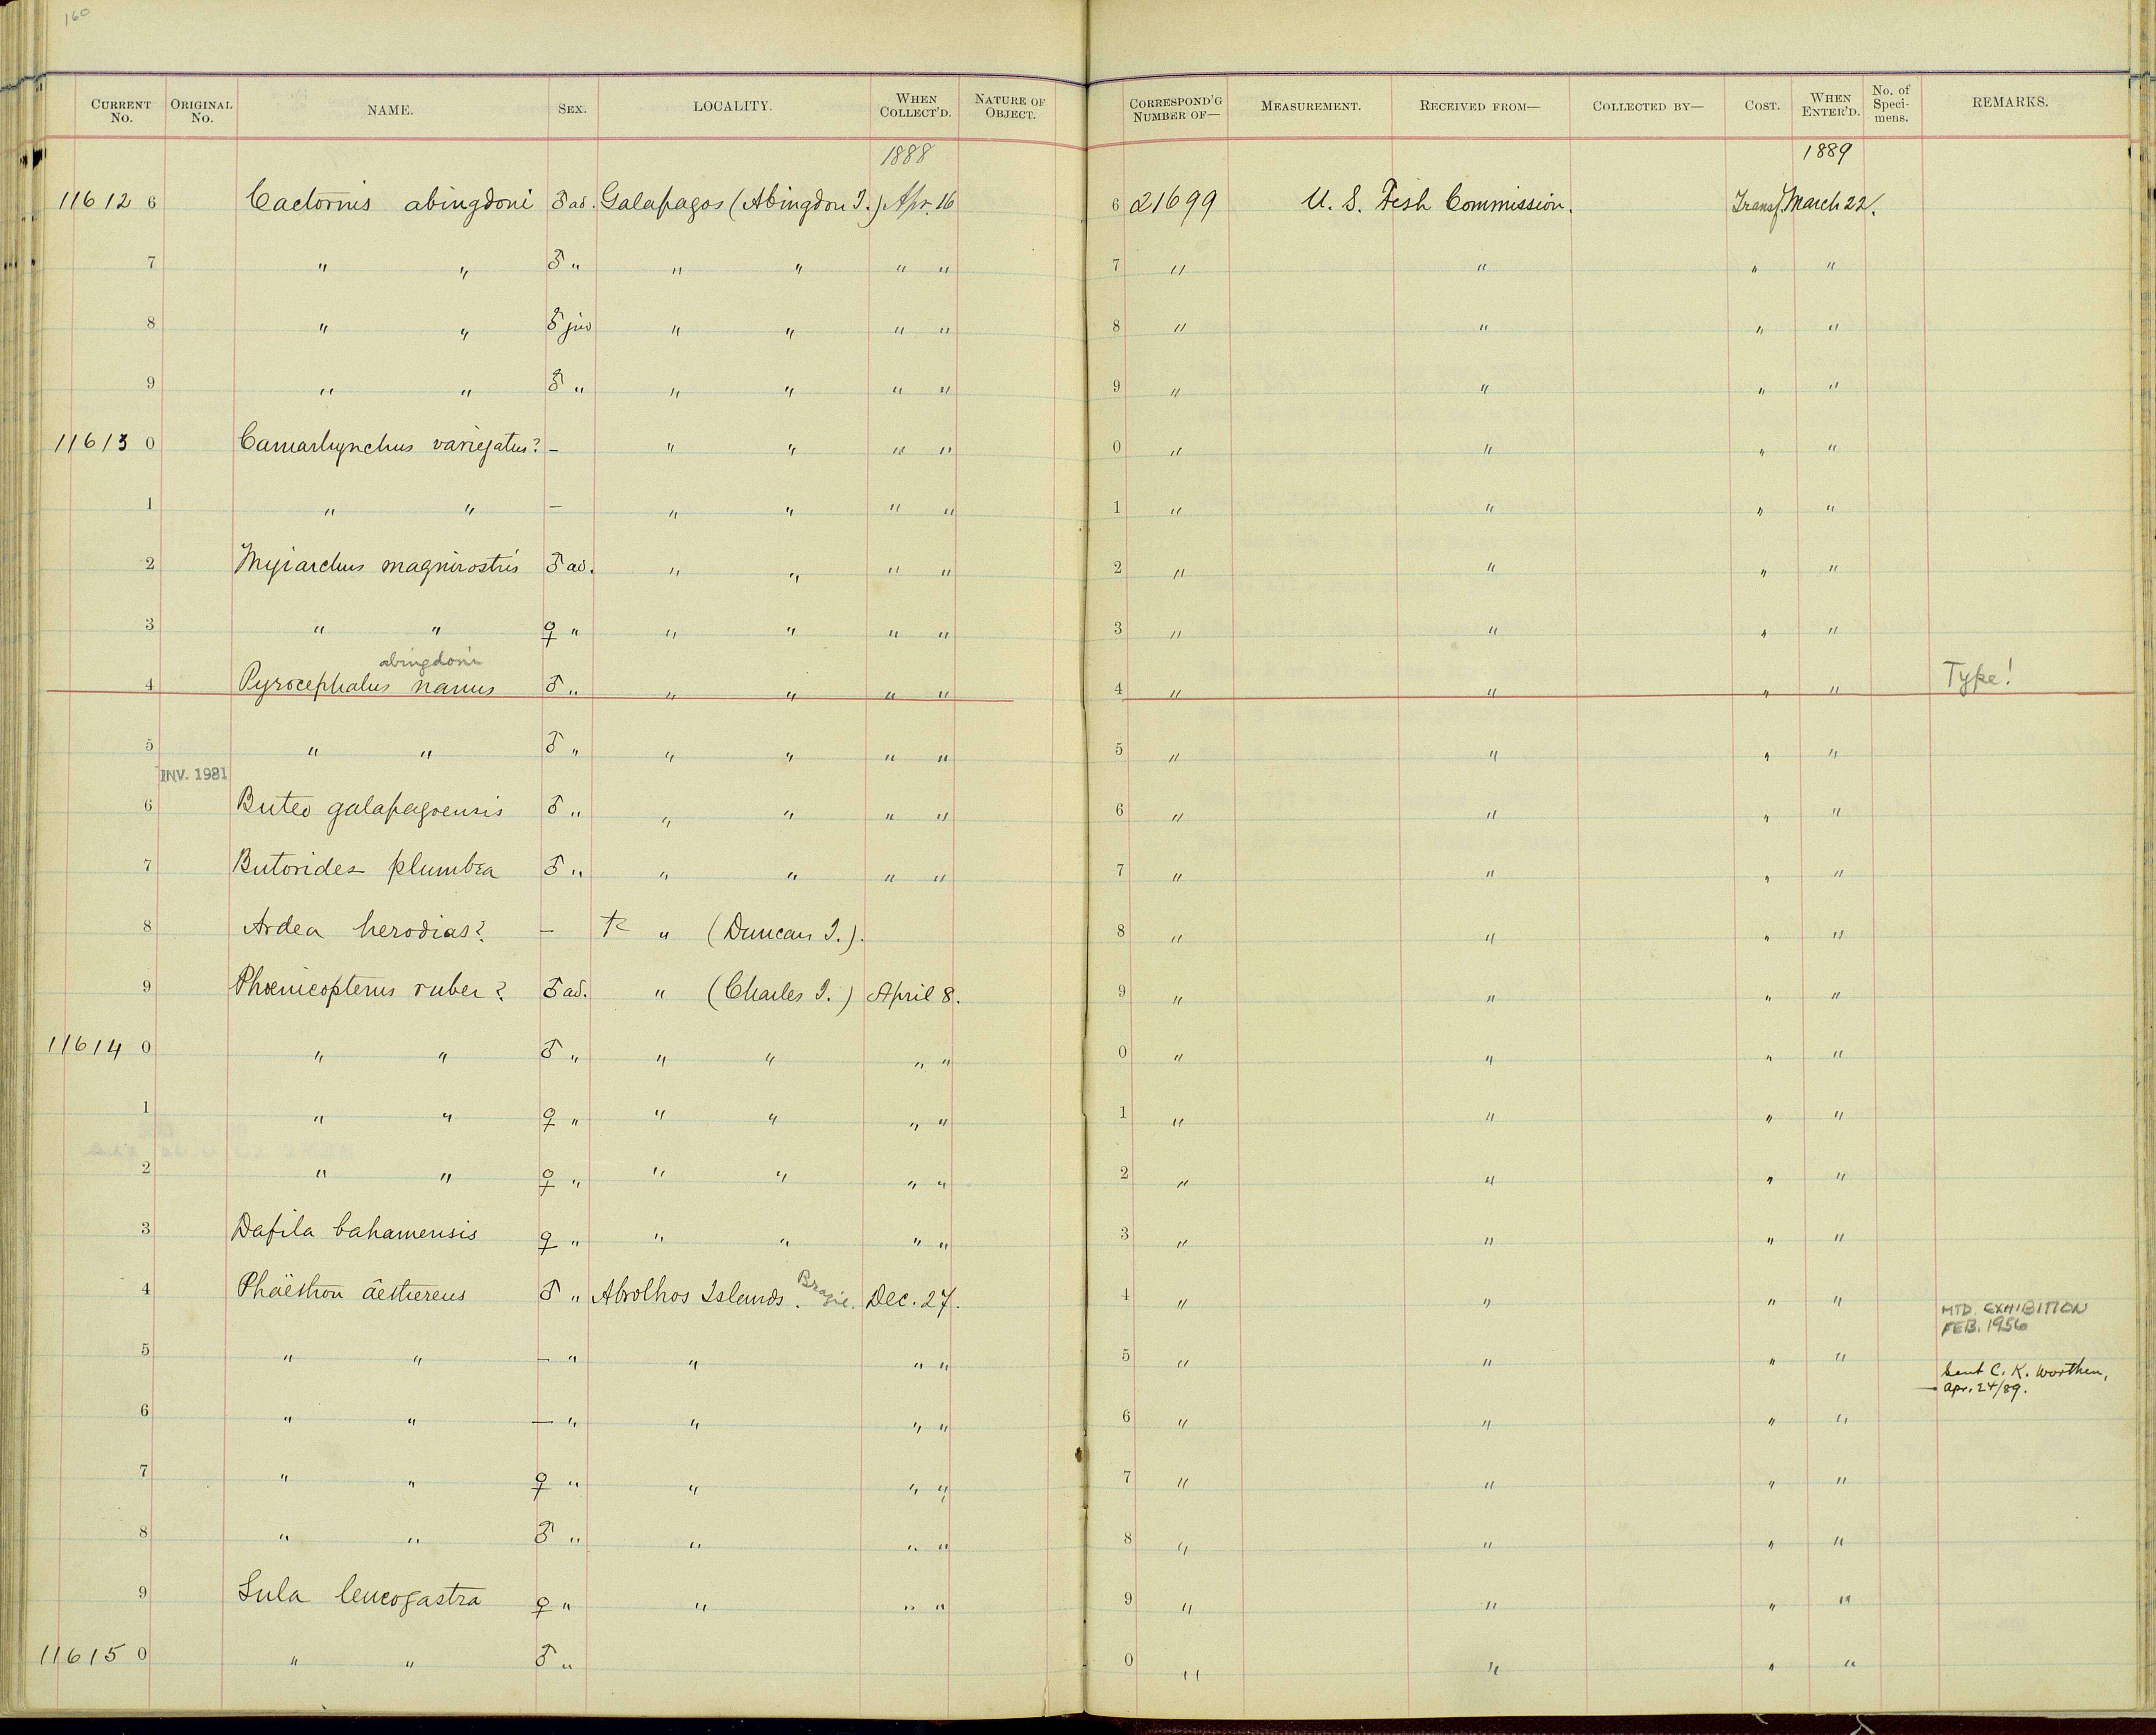 160
CURRENT No. ORIGINAL No. NAME. SEX. LOCALITY. WHEN COLLECT'D. NATURE OF OBJECT. CORRESPOND'G NUMBER OF— MEASUREMENT. RECEIVED FROM— COLLECTED BY— COST. WHEN ENTER'D. No. of Speci-mens. REMARKS.
1888 1889
11612 6 Cactornis abingdoni ♂ ad. Galapagos (Abingdon I.) Apr. 16 6 21699 U. S. Fish Commission. Transf. March 22.
7 " " ♂ " " " " " 7 " " " "
8 " " ♂ juv " " " " 8 " " " "
9 " " ♂ " " " " " 9 " " " "
11613 0 Camarhynchus variegatus? – " " " " 0 " " " "
1 " " – " " " " 1 " " " "
2 Myiarchus magnirostris ♂ ad. " " " " 2 " " " "
3 " " ♀ " " " " " 3 " " " "
abingdoni
4 Pyrocephalus nanus ♂ " " " " " 4 " " " " Type!
5 " " ♂ " " " " " 5 " " " "
INV. 1981
6 Buteo galapagoensis ♂ " " " " " 6 " " " "
7 Butorides plumbea ♂ " " " " " 7 " " " "
8 Ardea herodias? – " (Duncan I.). 8 " " " "
9 Phœnicopterus ruber? ♂ ad. " (Charles I.) April 8. 9 " " " "
11614 0 " " ♂ " " " " " 0 " " " "
1 " " ♀ " " " " " 1 " " " "
2 " " ♀ " " " " " 2 " " " "
3 Dafila bahamensis ♀ " " " " " 3 " " " "
4 Phaëthon äethereus ♂ " Abrolhos Islands. Brazil. Dec. 27. 4 " " " " MTD. EXHIBITION
FEB. 1956
5 " " – " " " " 5 " " " " Sent C. K. Worthen,
– Apr. 24/89.
6 " " – " " " " 6 " " " "
7 " " ♀ " " " " 7 " " " "
8 " " ♂ " " " " 8 " " " "
9 Sula leucogastra ♀ " " " " 9 " " " "
11615 0 " " ♂ " 0 " " " "